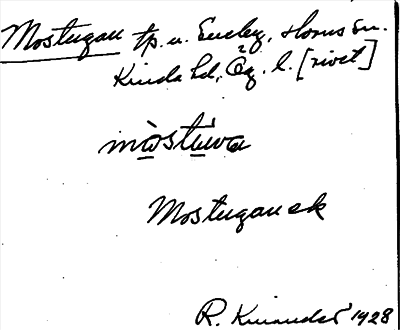 Mostugan tp. u. Eneby, Horns sn.
Kinda hd, Ög. l. [rivet]
mòstúwa
Mostuganek
R. Kinander 1928